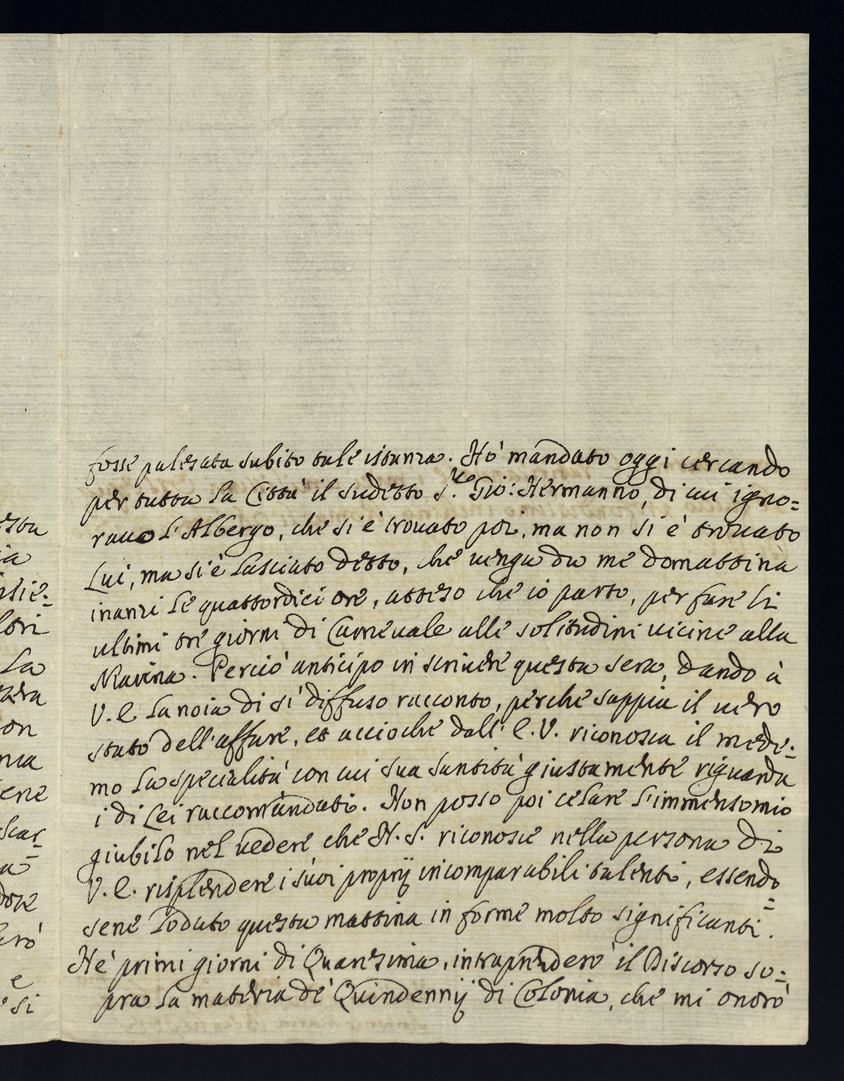 esta
ia
glie=
lori
La
zera
on
nia
ene
Scar=
a=
dore
larò
e
e si
fosse palesata subito tale istanza. Hò mandato oggi cercando
per tutta la Città il sudetto S.re Gio: Hermanno, di cui igno=
rauo l'Albergo, che si è trouato poi, ma non si è trouato
Lui, ma si è lasciato detto, che uenga da me domattina
inanzi le quattordici ore, atteso che io parto, per fare li
ultimi tre giorni di Carneuale alle solitudini uicine alla
Marina. Perciò anticipo in scriuere questa sera, dando à
V. E. la noia di sì diffuso racconto, perche sappia il uero
stato dell'affare, et accioche dall'E. V. riconosca il mede=
mo la specialità con cui sua santità giustamente riguarda
i di Lei raccomandati. Non posso poi celare l'immenso mio
giubilo nel uedere che N. S. riconosce nella persona di
V. E. risplendere i suoi proprij incomparabili talenti, essendo=
sene lodato questa mattina in forme molto significanti.
Nè primi giorni di Quaresima, intraprenderò il Discorso so=
pra la materia dè Quindennij di Colonia, che mi onorò